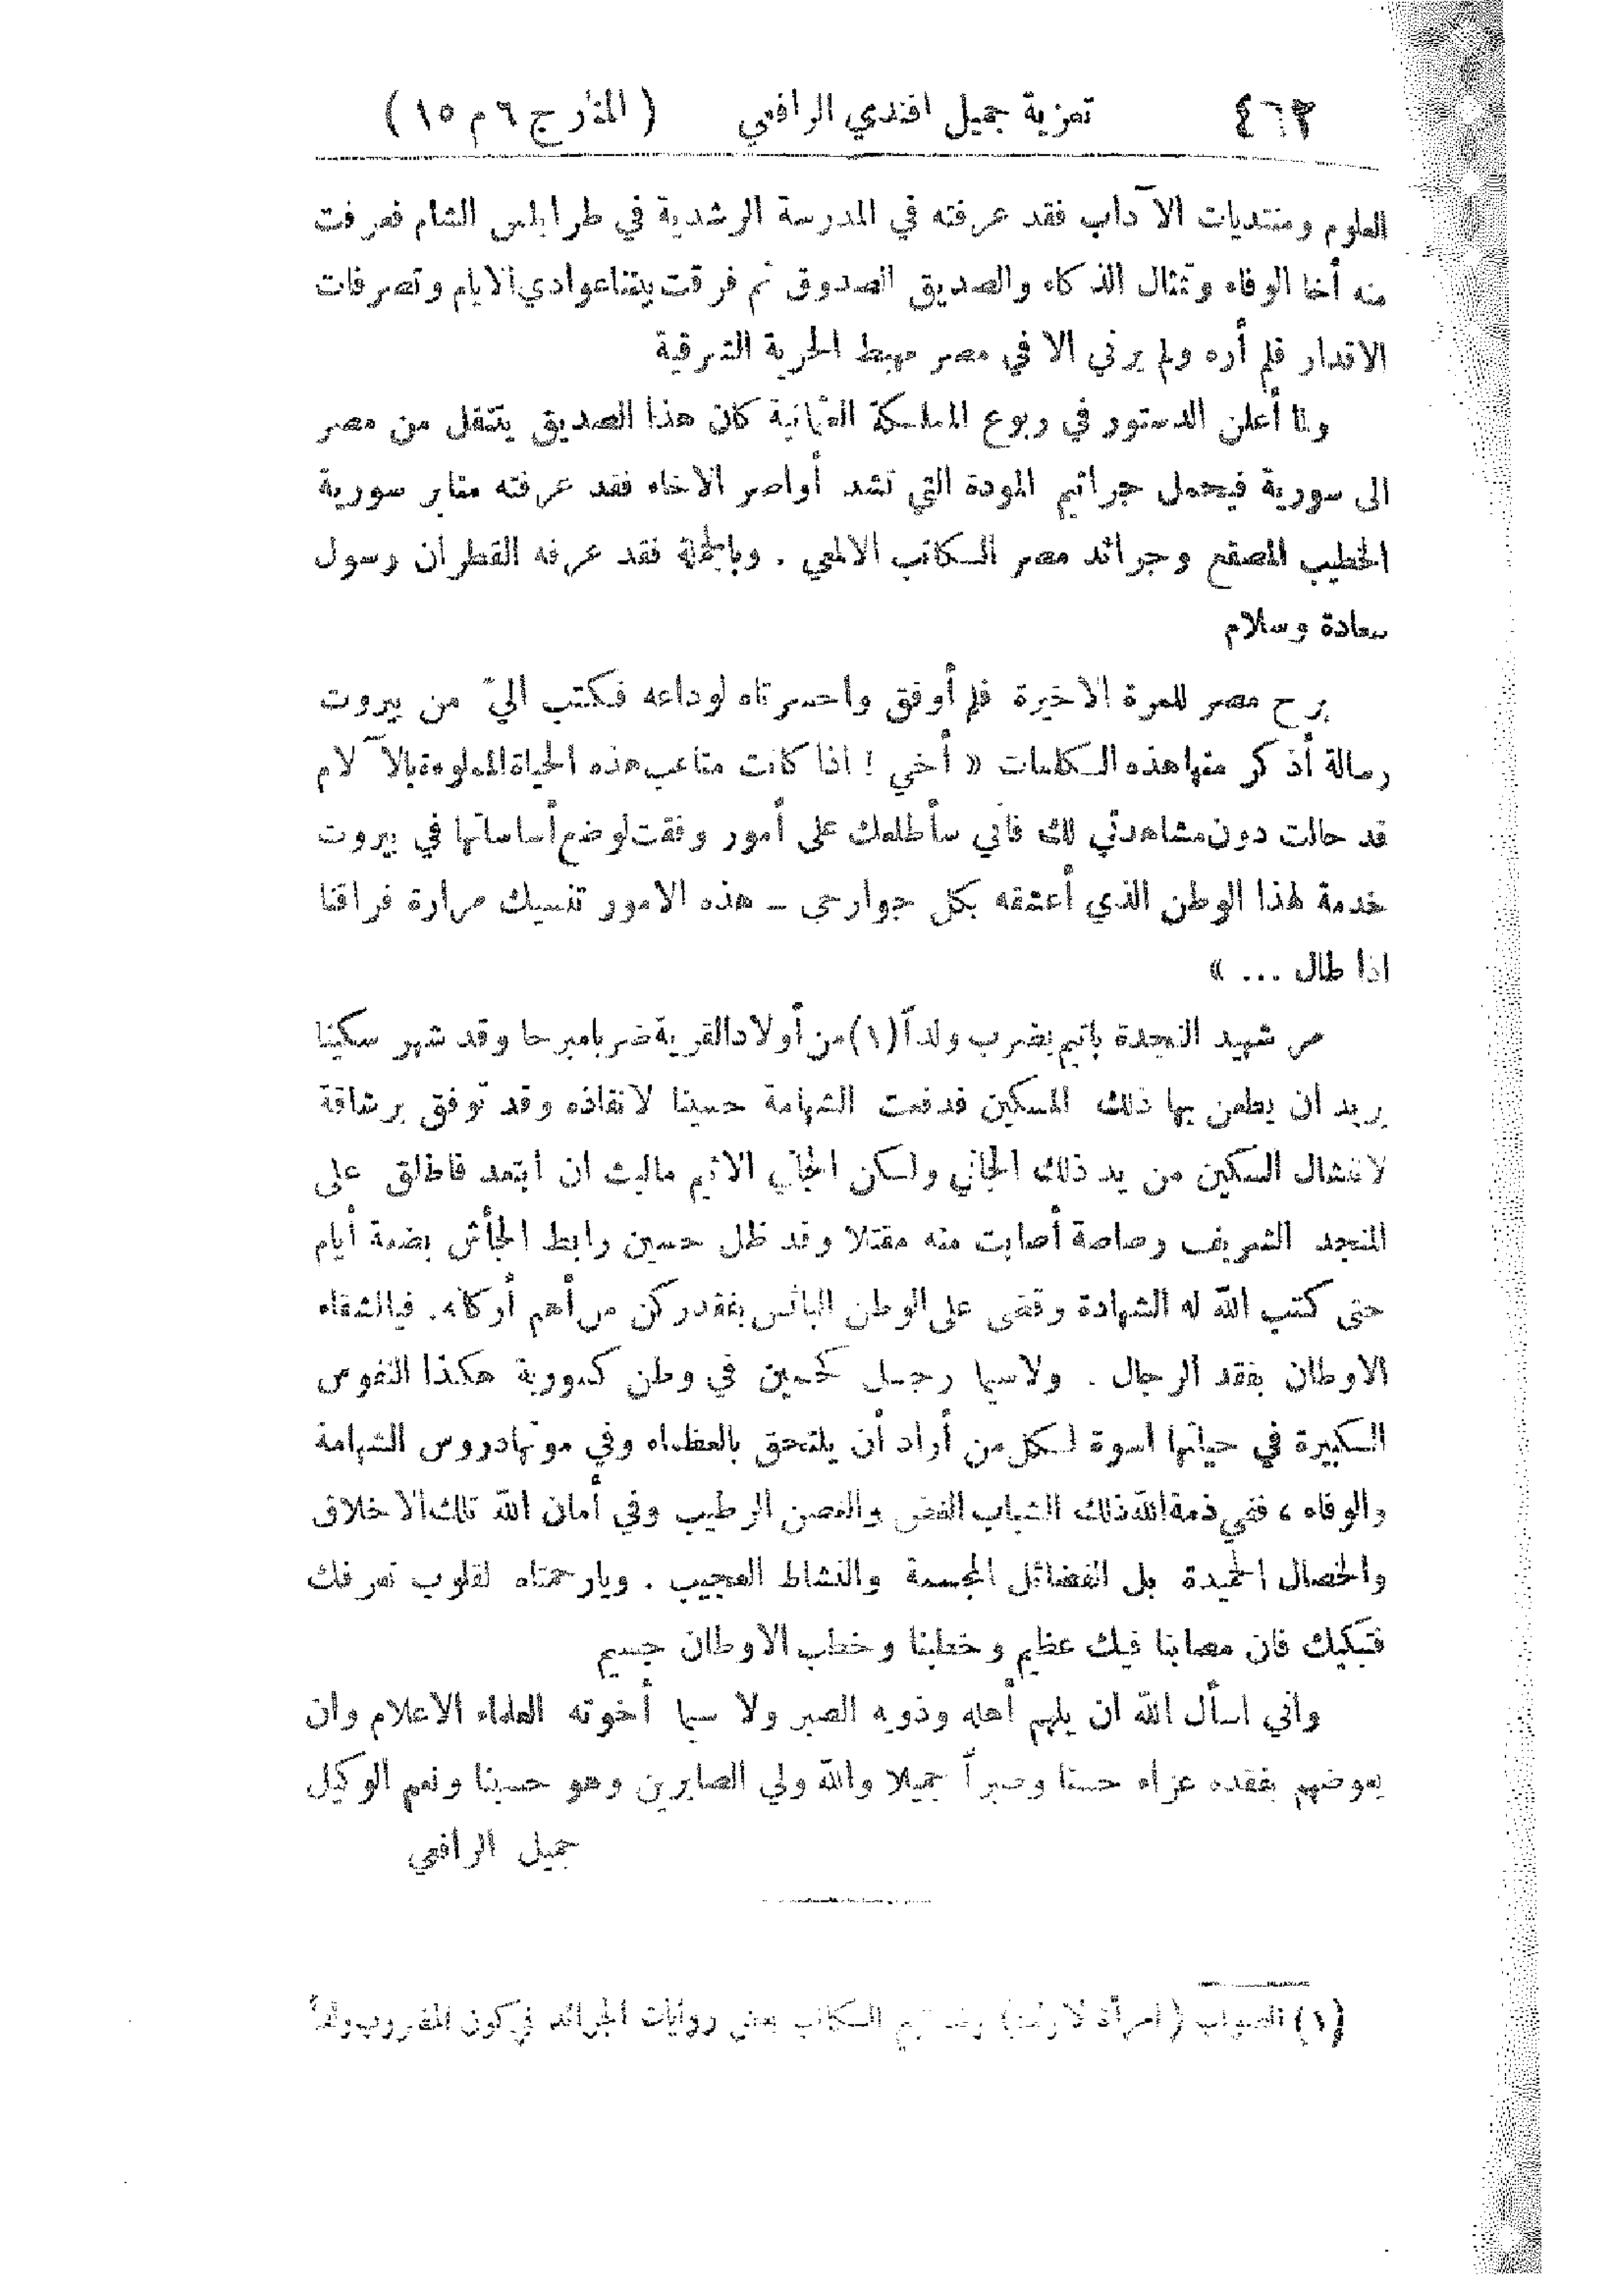 ٤٦٢ تعزية جميل افندي الرافعي (المنارج ٦ م ١٥)
العلوم ومنتديات الآداب فقد عرفته في المدرسة الرشدية في طرابلس الشام فعرفت
منه أخا الوفاء وتمثال الذكاء والصديق الصدوق ثم فرقت بيننا عوادي الايام وتصرفات
الاقدار فلم أره ولم يرني الا في مصر مهبط الحرية الشرقية
ولما أعلن الدستور في ربوع المملكة العثمانية كان هذا الصديق يتنقل من مصر
الى سورية فيحمل جراثيم المودة التي تشد أواصر الاخاء فقد عرفته منابر سورية
الخطيب المصقع وجرائد مصر الكاتب الالمعي . وبالجملة فقد عرفه القطران رسول
سعادة وسلام
برح مصر للمرة الاخيرة فلم أوفق واحسرتاه لوداعه فكتب اليّ من بيروت
رسالة أذكر منها هذه الكلمات « أخي ! اذا كانت متاعب هذه الحياة المملوءة بالآلام
قد حالت دون مشاهدتي لك فاني سأطلعك على أمور وفقت لوضع أساساتها في بيروت
خدمة لهذا الوطن الذي أعشقه بكل جوارحي ــ هذه الامور تنسيك مرارة فراقنا
اذا طال ... »
مر شهيد النجدة باثيم يضرب ولداً (١) من أولاد القرية ضربا مبرحا وقد شهر سكينا
يريد ان يطعن بها ذلك المسكين فدفعت الشهامة حسينا لانقاذه وقد توفق برشاقة
لانتشال السكين من يد ذلك الجاني ولكن الجاني الاثيم مالبث ان ابتعد فاطلق على
المنجد الشريف رصاصة أصابت منه مقتلا وقد ظل حسين رابط الجأش بضعة أيام
حتى كتب الله له الشهادة وقضى على الوطن البائس بفقد ركن من أهم أركانه . فيالشقاء
الاوطان بفقد الرجال . ولاسيما رجل كحسين في وطن كسورية هكذا النفوس
الكبيرة في حياتها اسوة لكل من أراد أن يلتحق بالعظماء وفي موتها دروس الشهامة
والوفاء ، ففي ذمة الله ذلك الشباب الغض والغصن الرطيب وفي أمان الله تلك الاخلاق
والخصال الحميدة بل الفضائل المجسمة والنشاط العجيب . ويارحمتاه لقلوب تعرفك
فتبكيك فان مصابنا فيك عظيم وخطبنا وخطب الاوطان جسيم
واني اسأل الله ان يلهم أهله وذويه الصبر ولا سيما أخوته العلماء الاعلام وان
يعوضهم بفقده عزاء حسنا وصبراً جميلا والله ولي الصابرين وهو حسبنا ونعم الوكيل
جميل الرافعي
(١) الصواب (امرأة لا ولد) الكاتب بعض روايات الجرائد في كون المضروب ولداً